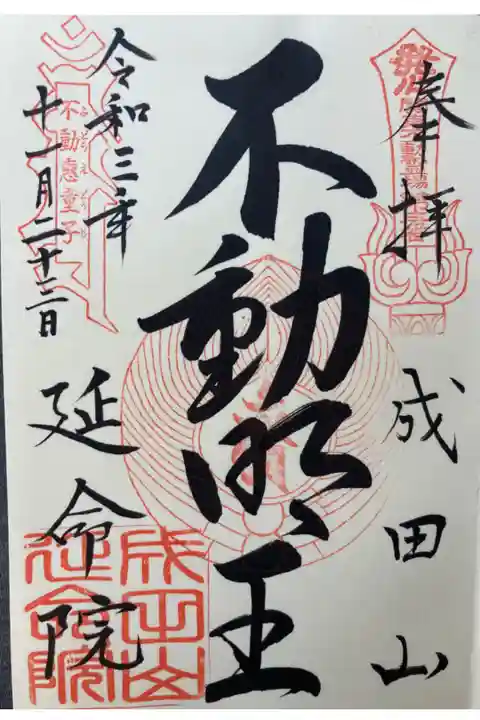 奉拝
成田山
不動明王
令和三年
十一月二十三日
延命院
不動恵童子
ふどうえどうじ
成田山
延命院